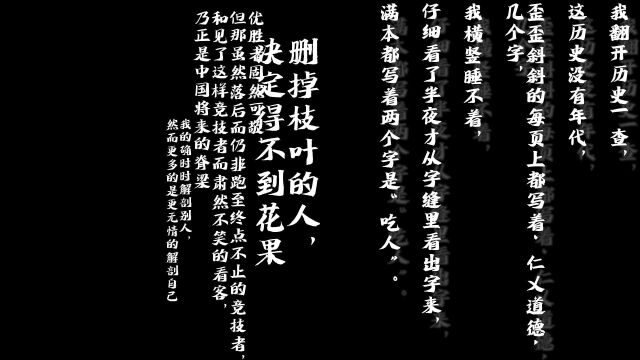 我翻开历史一查，
这历史没有年代，
歪歪斜斜的每页上都写着，仁乂道德，
几个字，
我横竖睡不着，
仔细看了半夜才从字缝里看出字来，
满本都写着两个字是“吃人”。
删掉枝叶的人，
决定得不到花果
优胜者固然可敬
但那虽然落后而仍非跑至终点不止的竞技者，
和见了这样竞技者而肃然不笑的看客，
乃正是中国将来的脊梁
我的确时时解剖别人，
然而更多的是更无情的解剖自己